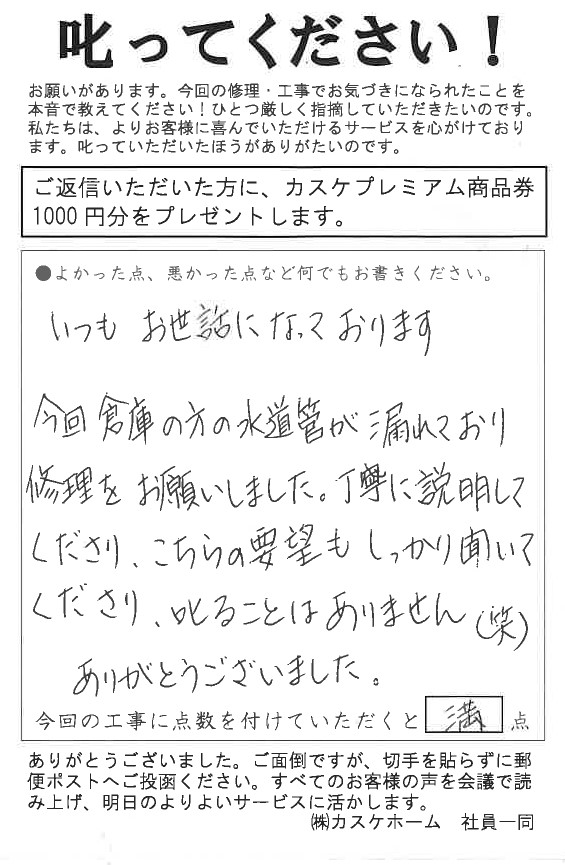 叱ってください！
お願いがあります。今回の修理・工事でお気づきになられたことを
本音で教えてください！ひとつ厳しく指摘していただきたいのです。
私たちは、よりお客様に喜んでいただけるサービスを心がけており
ます。叱っていただいたほうがありがたいのです。
ご返信いただいた方に、カスケプレミアム商品券
1000円分をプレゼントします。
●よかった点、悪かった点など何でもお書きください。
いつも お世話になっております
今回倉庫の方の水道管が漏れており
修理をお願いしました。丁寧に説明して
くださり、こちらの要望もしっかり聞いて
くださり、叱ることはありません(笑)
ありがとうございました。
今回の工事に点数を付けていただくと 満 点
ありがとうございました。ご面倒ですが、切手を貼らずに郵
便ポストへご投函ください。すべてのお客様の声を会議で読
み上げ、明日のよりよいサービスに活かします。
㈱カスケホーム 社員一同